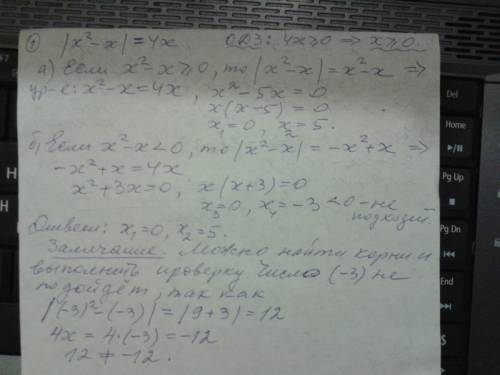 ① |x²-x|=4x. ОДЗ: 4x≥0 ⇒ x≥0.
а) Если x²-x≥0, то |x²-x|=x²-x ⇒
ур-е: x²-x=4x, x²-5x=0
x(x-5)=0
x₁=0, x₂=5.
б) Если x²-x<0, то |x²-x|=-x²+x ⇒
-x²+x=4x
x²+3x=0, x(x+3)=0
x₃=0, x₄=-3<0-не
подходит.
Ответ: x₁=0, x₂=5.
Замечание. Можно найти корни и
выполнить проверку. Число (-3) не
подойдёт, так как
|(-3)²-(-3)|=|9+3|=12
4x=4·(-3)=-12
12≠-12.
F7
Home
Pg Up
Pg Dn
End